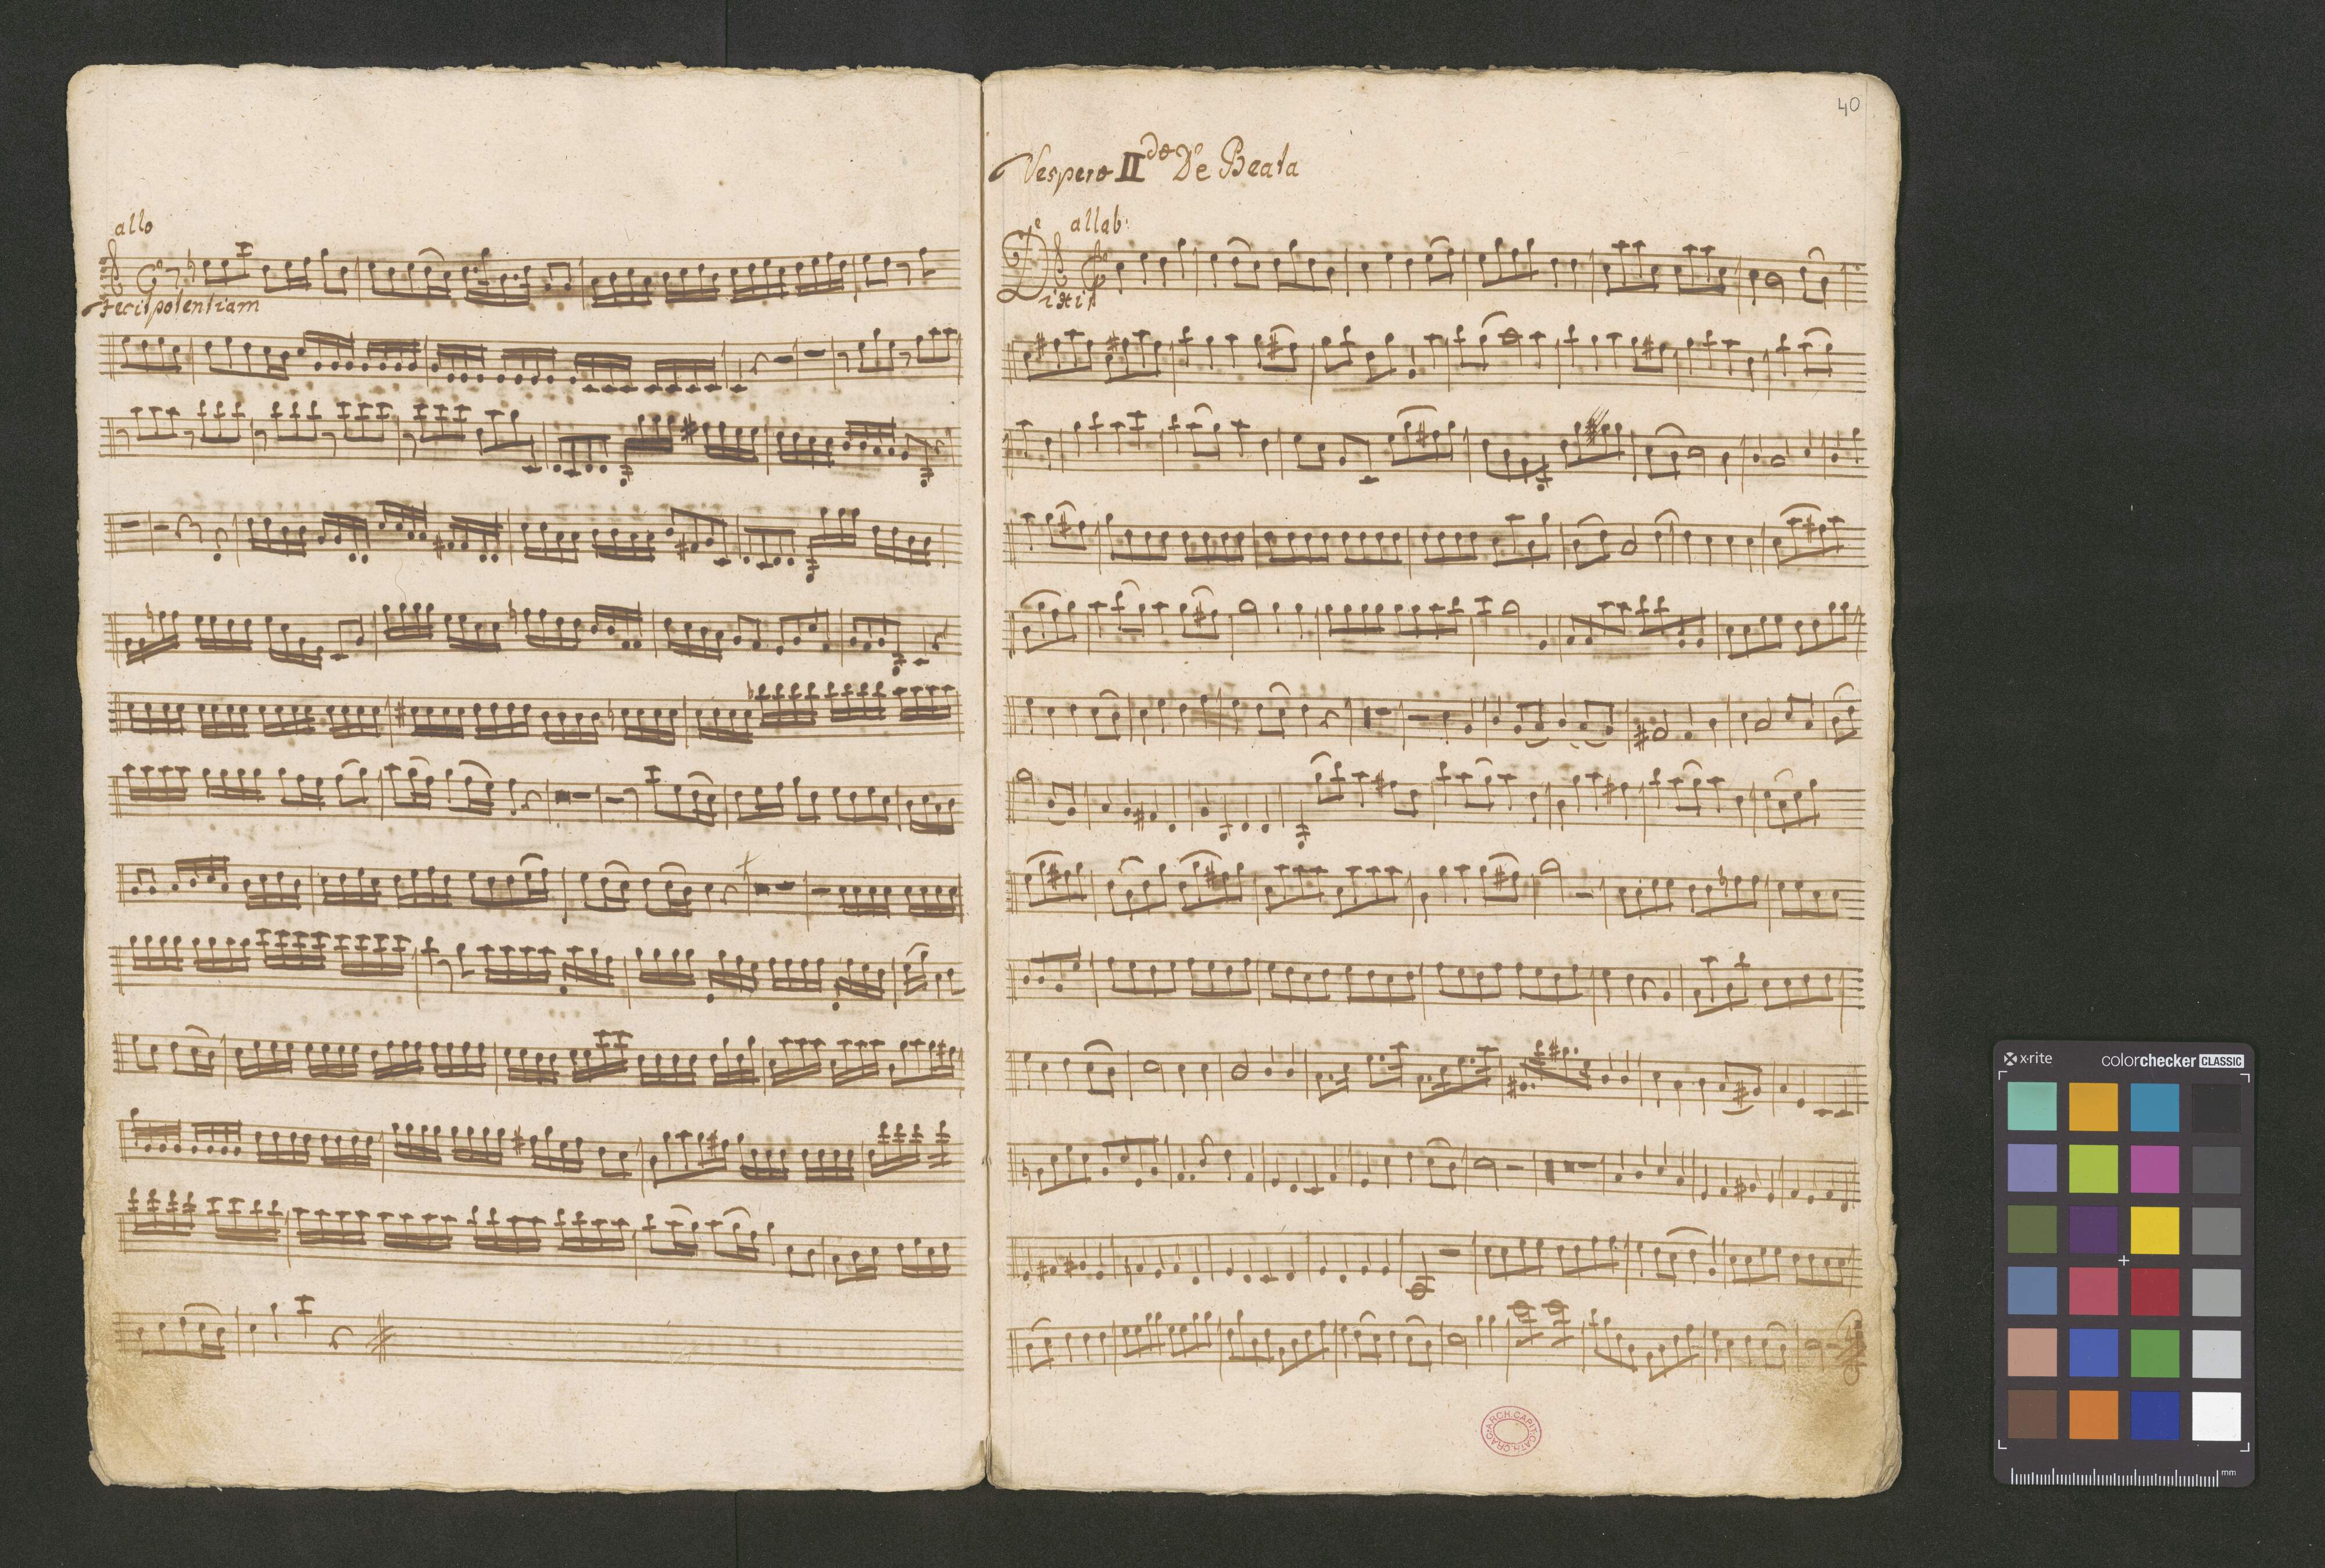 allo
Fecit potentiam
40
Vespero II do De Beata
allab:
Dixit
ARCH. CAPIT. CATH. GRAC.
x-rite
colorchecker CLASSIC
mm